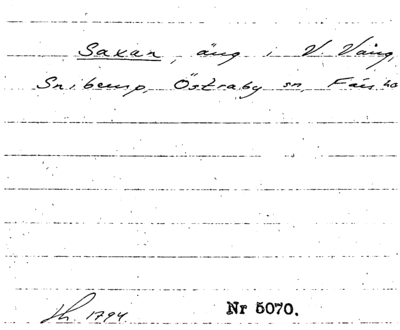 Saxan, äng i V. Vång,
Snibemp, Östraby sn, Färs hd
Lh. 1794. Nr 5070.